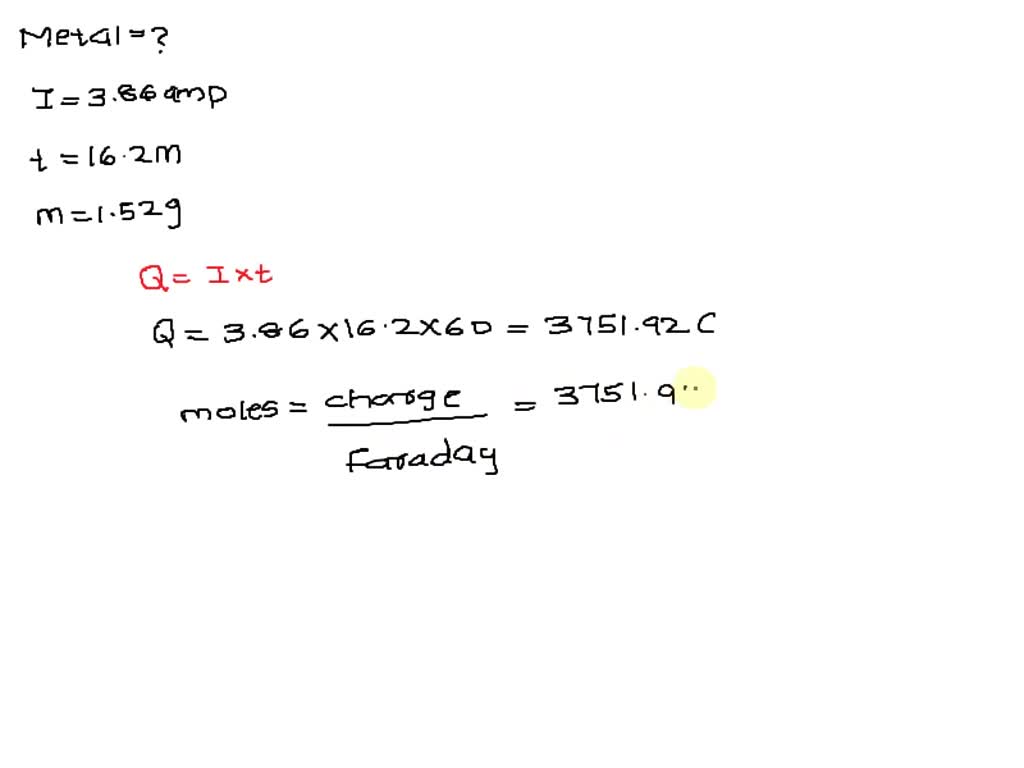 Metal=?
I=3.86 amp
t=16.2m
m=1.52g
Q= I×t
Q= 3.86×16.2×60 = 3751.92 C
moles = charge / Faraday = 3751.9